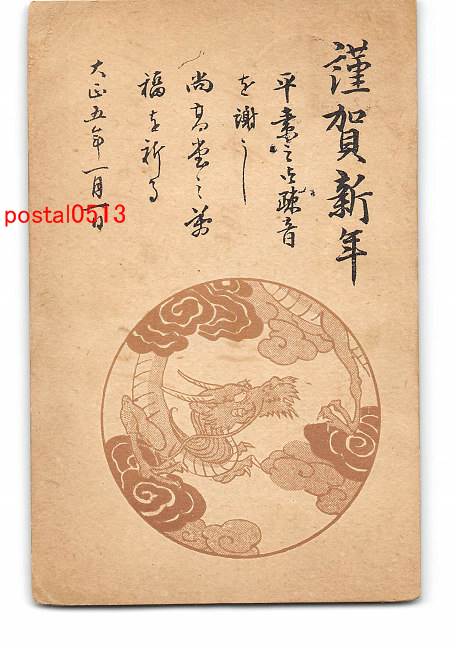 謹賀新年
平素之御疎音
を謝し
尚高堂之萬
福を祈る
大正五年一月一日
postal0513